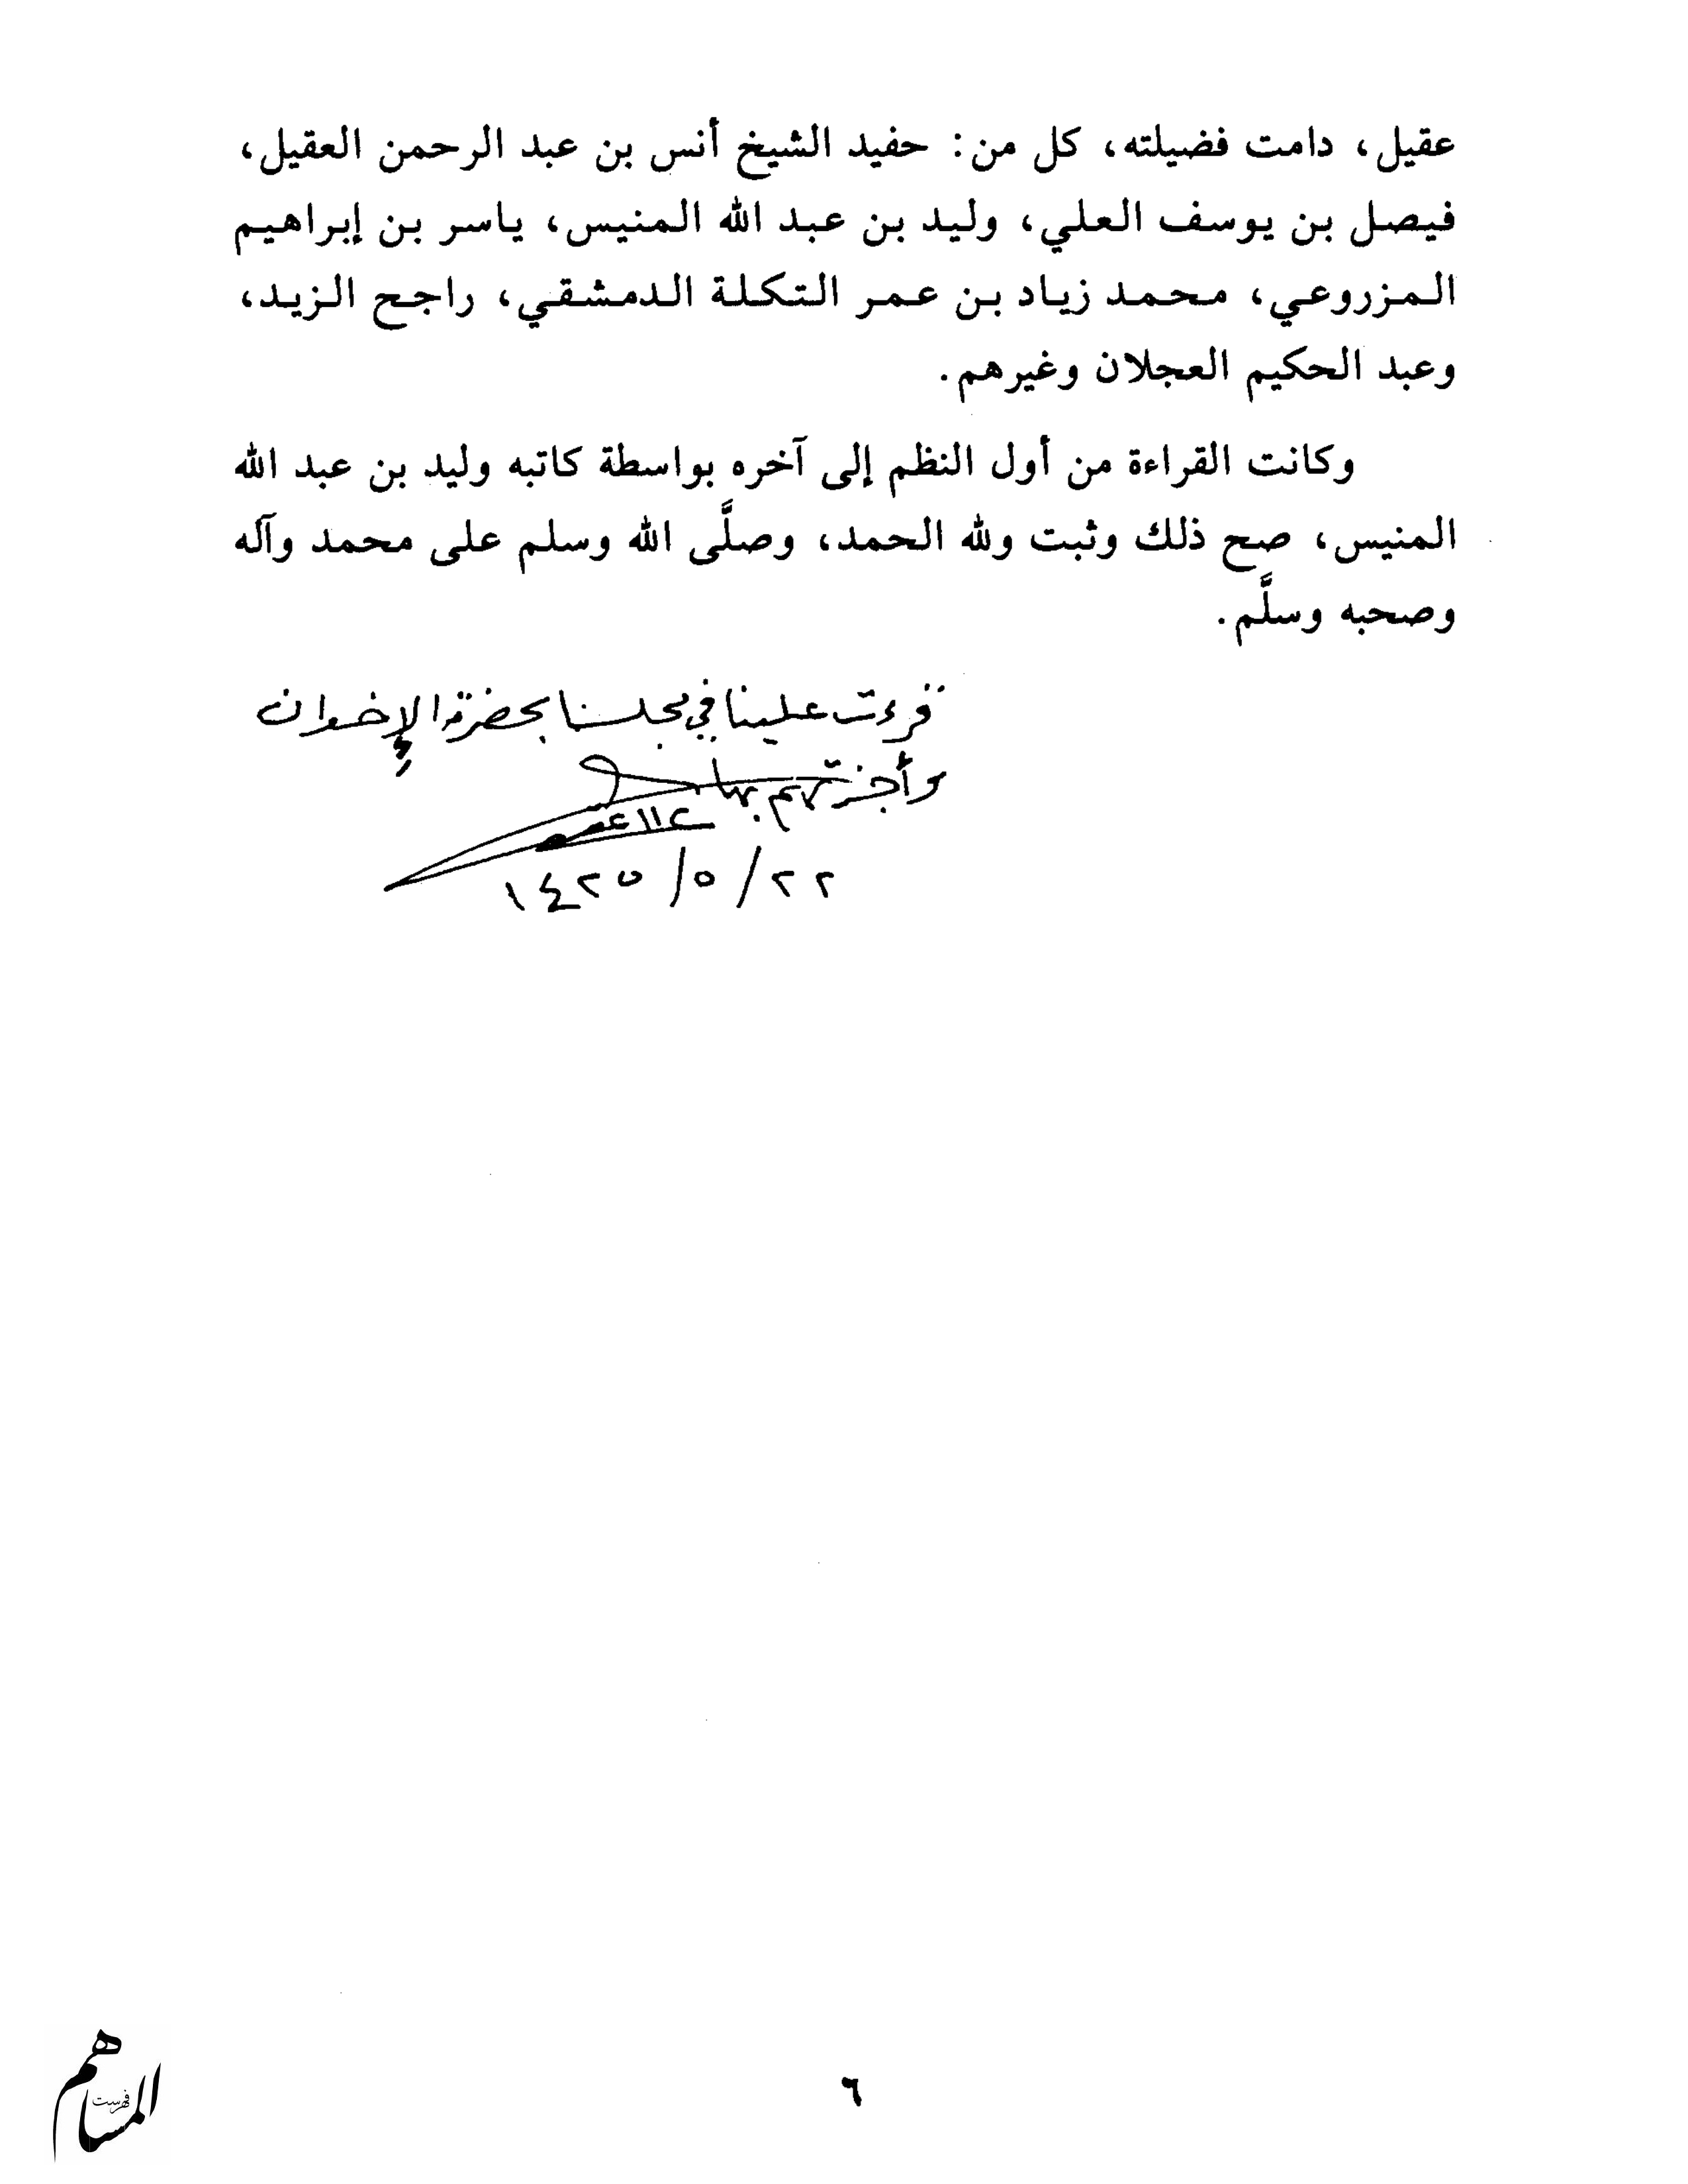 عقيل، دامت فضيلته، كل من: حفيد الشيخ أنس بن عبد الرحمن العقيل،
فيصل بن يوسف العلي، وليد بن عبد الله المنيس، ياسر بن إبراهيم
المزروعي، محمد زياد بن عمر التكلة الدمشقي، راجح الزيد،
وعبد الحكيم العجلان وغيرهم.
وكانت القراءة من أول النظم إلى آخره بواسطة كاتبه وليد بن عبد الله
المنيس، صح ذلك وثبت ولله الحمد، وصلَّى الله وسلم على محمد وآله
وصحبه وسلَّم.
قرءت علينا في مجلسنا بحضرة الإخوان
وأجزتهم بها
٢٢/٥/١٤٢٥
٦
فهرست
المساهم